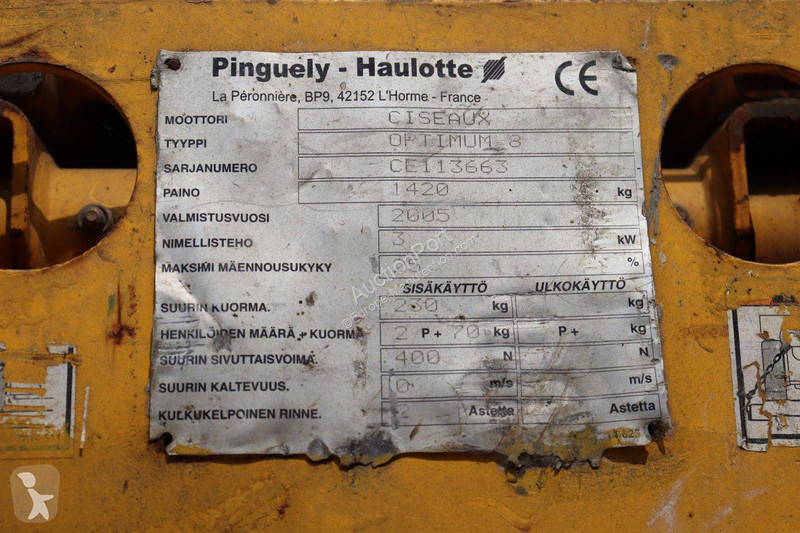 Pinguely - Haulotte
CE
La Péronnière, BP9, 42152 L'Horme - France
MOOTTORI CISEAUX
TYYPPI OPTIMUM 8
SARJANUMERO CE113663
PAINO 1420 kg
VALMISTUSVUOSI 2005
NIMELLISTEHO 3 kW
MAKSIMI MÄENNOUSUKYKY %
SISÄKÄYTTÖ ULKOKÄYTTÖ
SUURIN KUORMA. 230 kg kg
HENKILÖIDEN MÄÄRÄ + KUORMA 2 P + 70 kg P + kg
SUURIN SIVUTTAISVOIMA. 400 N N
SUURIN KALTEVUUS. 0 m/s m/s
KULKUKELPOINEN RINNE. 2 Astetta Astetta
AuctionPort